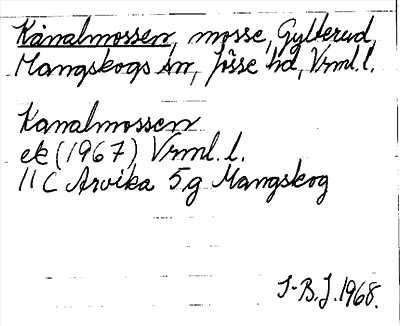 Kanalmossen, mosse, Gylterud,
Mangskogs sn, Jösse hd, Vrml. l.
Kanalmossen
ek (1967), Vrml. l.
11 C Arvika 5 g Mangskog
I-B. J. 1968.